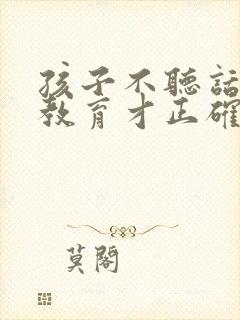 孩子不聽話
教育才正確
莫閣